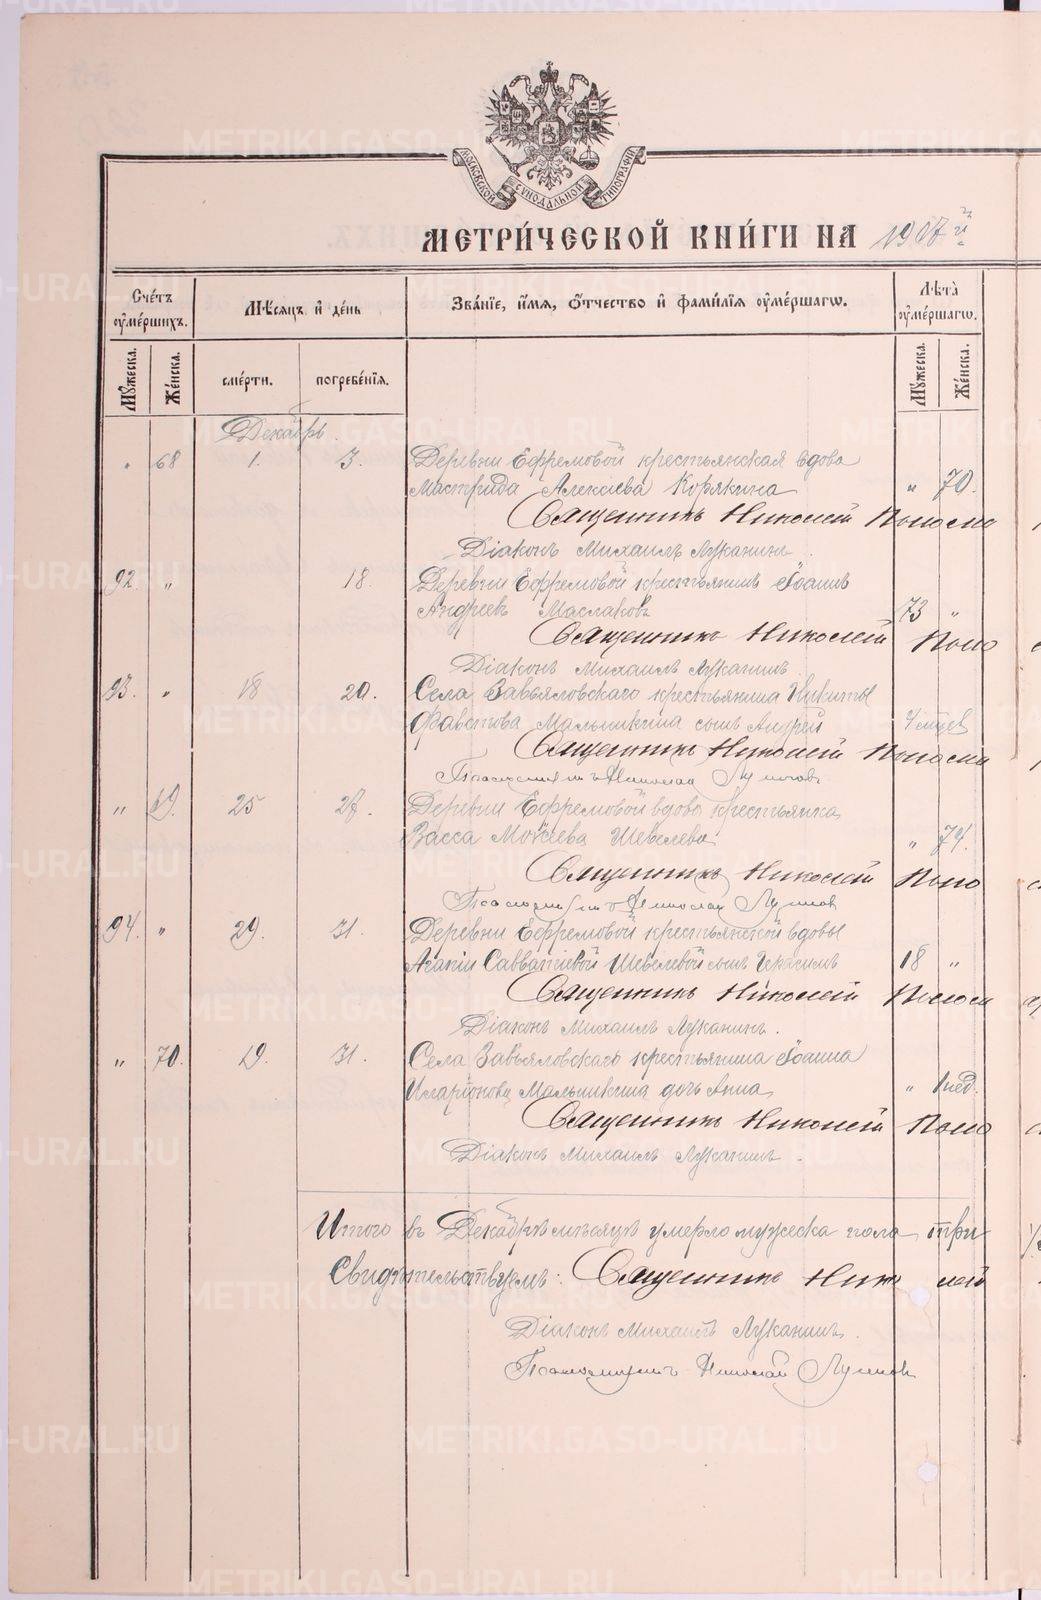 МОСКОВСКОЙ СѴНОДАЛЬНОЙ ТИПОГРАФІИ
МЕТРИ́ЧЕСКОЙ КНИ́ГИ НА 1907й
Сче́тъ ᲂу҆ме́ршихъ. Мѣ́сяцъ и҆ де́нь Зва́нїе, и҆́мѧ, ѻ҆́тчество и҆ фами́лїѧ ᲂу҆ме́ршагѡ. Лѣ́та ᲂу҆ме́ршагѡ.
Мꙋ́жеска. Же́нска. сме́рти. погребе́нїѧ. Мꙋ́жеска. Же́нска.
Декабрь.
„ 68 1. 3. Деревни Ефремовой крестьянская вдова
Мастридія Алексіева Корякина „ 70.
Священникъ Николай
Діаконъ Михаилъ Луканинъ.
92. „ 18. Деревни Ефремовой крестьянинъ Іоаннъ
Андреевъ Маслаковъ 73 „
Священникъ Николай
Діаконъ Михаилъ Луканинъ.
93. „ 18 20. Села Завьяловскаго крестьянина Никиты
Мальшкина сынъ Андрей 4 мцев
Священникъ Николай
Псаломщикъ Николай
„ 69. 25 27. Деревни Ефремовой вдова крестьянка
Васса Моѵсеева Шевелева „ 74.
Священникъ Николай
Псаломщикъ Николай
94. „ 29. 31. Деревни Ефремовой крестьянской вдовы
Агапіи Савватіевой Шевелевой сынъ Герасимъ 18 „
Священникъ Николай
Діаконъ Михаилъ Луканинъ.
„ 70. 19. 31. Села Завьяловскаго крестьянина Іоанна
Иларіонова Мальшкина дочь Анна „ 1 нед.
Священникъ Николай
Діаконъ Михаилъ Луканинъ.
Итого въ Декабрѣ мѣсяцѣ умерло мужеска пола три
Свидѣтельствуемъ: Священникъ Николай
Діаконъ Михаилъ Луканинъ.
Псаломщикъ Николай
METRIKI.GASO-URAL.RU